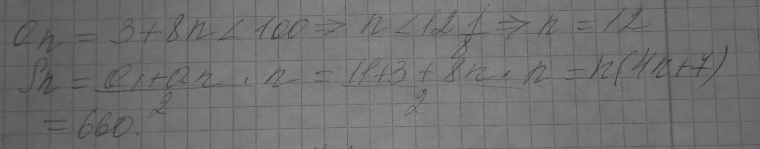 an = 3+8n < 100 ⇒ n < 12 1/8 ⇒ n = 12
Sn = (a1+an)/2 · n = (11+3+8n)/2 · n = n(4n+7)
= 660.